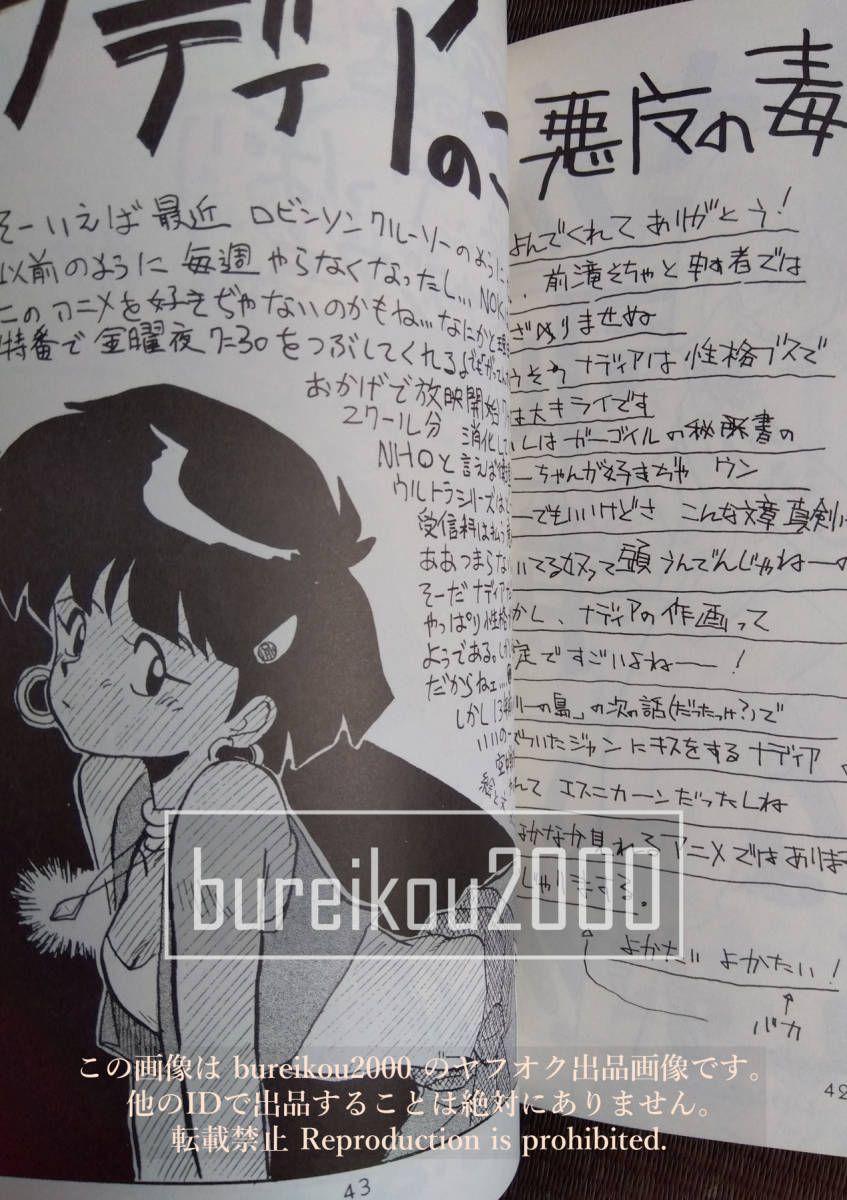 ナディアのこ
そーいえば 最近 ロビンソンクルーソーのように
以前のように 毎週 やらなくなったし… NOK
このアニメを好きぢゃないのかもね…なにかと
特番で 金曜夜7:30をつぶしてくれるよ
おかげで放映開始
2クール分 消化して
NHOと言えば
ウルトラシリーズは
受信料は払う
ああつまらない
そーだ ナディア
やっぱり性格
ようである。しか
だからねェ…
しかし13
いいの
絵と
43
悪戊の毒
よんでくれて ありがとう!
前滝そちゃと 申す者では
ざありませぬ
うそう ナディアは 性格ブスで
は大キライです
しはガーゴイルの秘書の
ーちゃんが好きぢゃ ウン
ーでもいいけどさ こんな文章 真剣に
いてる奴って 頭うんでんじゃねーの
かし、ナディアの作画って
定ですごいよねー!
リーの島」の次の話(だったっけ?)で
づいたジャンにキスをする ナディア
んて エスニカーンだったしね
なかなか見れるアニメではありま
じゃりまする。
よかたい よかたい!
バカ
42
bureikou2000
この画像は bureikou2000 のヤフオク出品画像です。
他のIDで出品することは絶対にありません。
転載禁止 Reproduction is prohibited.